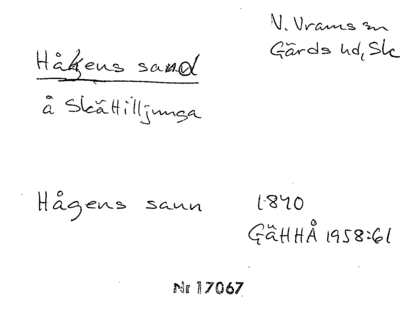 V. Vrams sn
Gärds hd, Sk
Håkens sand
å Skättilljunga
Hågens saun 1840
GäHHÅ 1958:61
Nr 17067